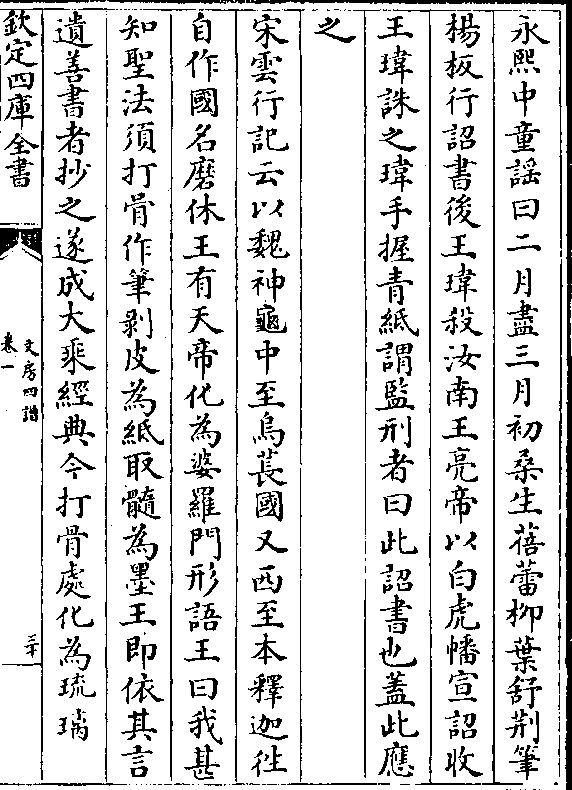 永熙中童謡曰二月盡三月初桑生蓓蕾柳葉舒荆筆
楊板行詔書後王瑋殺汝南王亮帝以白虎幡宣詔收
王瑋誅之瑋手握青紙謂監刑者曰此詔書也蓋此應
之
宋雲行記云以魏神龜中至烏萇國又西至本釋迦徃
自作國名磨休王有天帝化為婆羅門形語王曰我甚
知聖法須打骨作筆剥皮為紙取髓為墨王即依其言
遺善書者抄之遂成大乘經典今打骨處化為琉璃
欽定四庫全書
文房四譜
卷一
三十